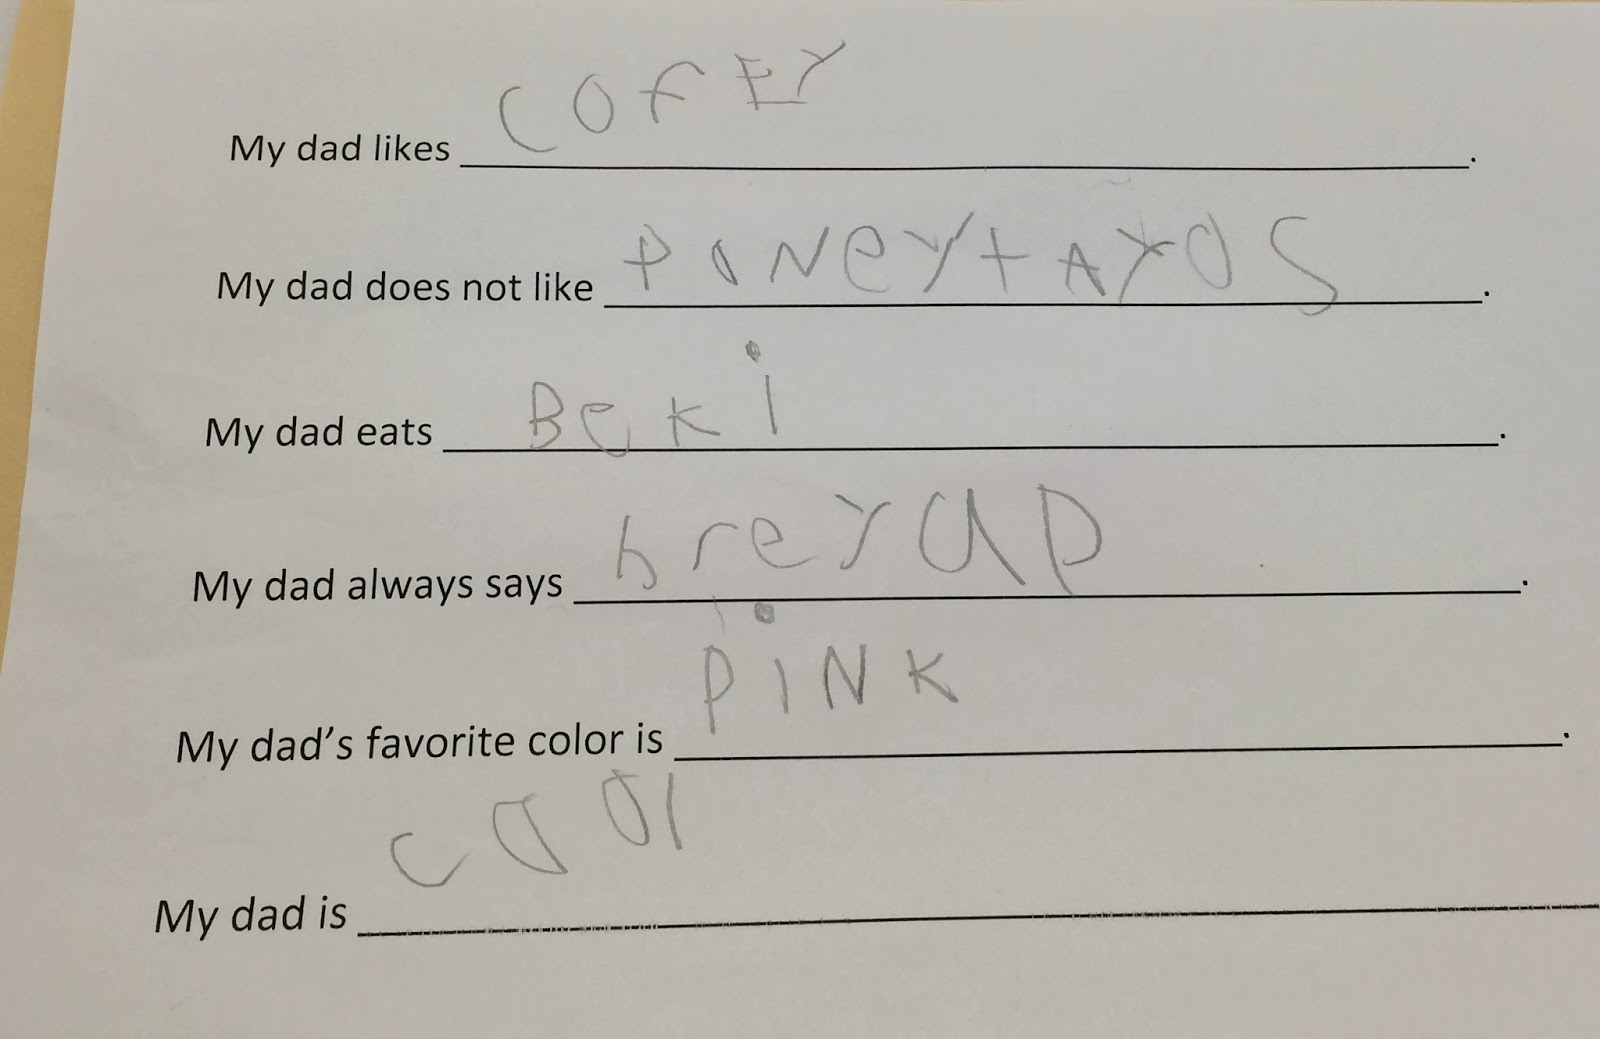 My dad likes COFEY.
My dad does not like PONeYtAYOS.
My dad eats BeKi.
My dad always says hreyap.
My dad's favorite color is PiNK.
My dad is cool